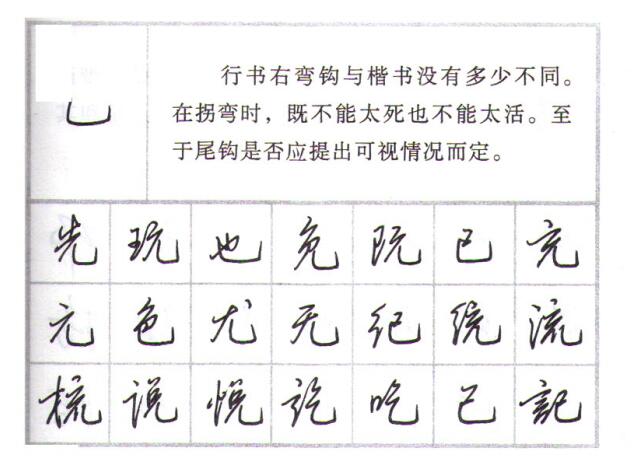 行书右弯钩与楷书没有多少不同。
在拐弯时，既不能太死也不能太活。至
于尾钩是否应提出可视情况而定。
先 玩 也 免 阮 已 充
元 色 尤 无 纪 统 流
梳 说 悦 讫 吃 己 記